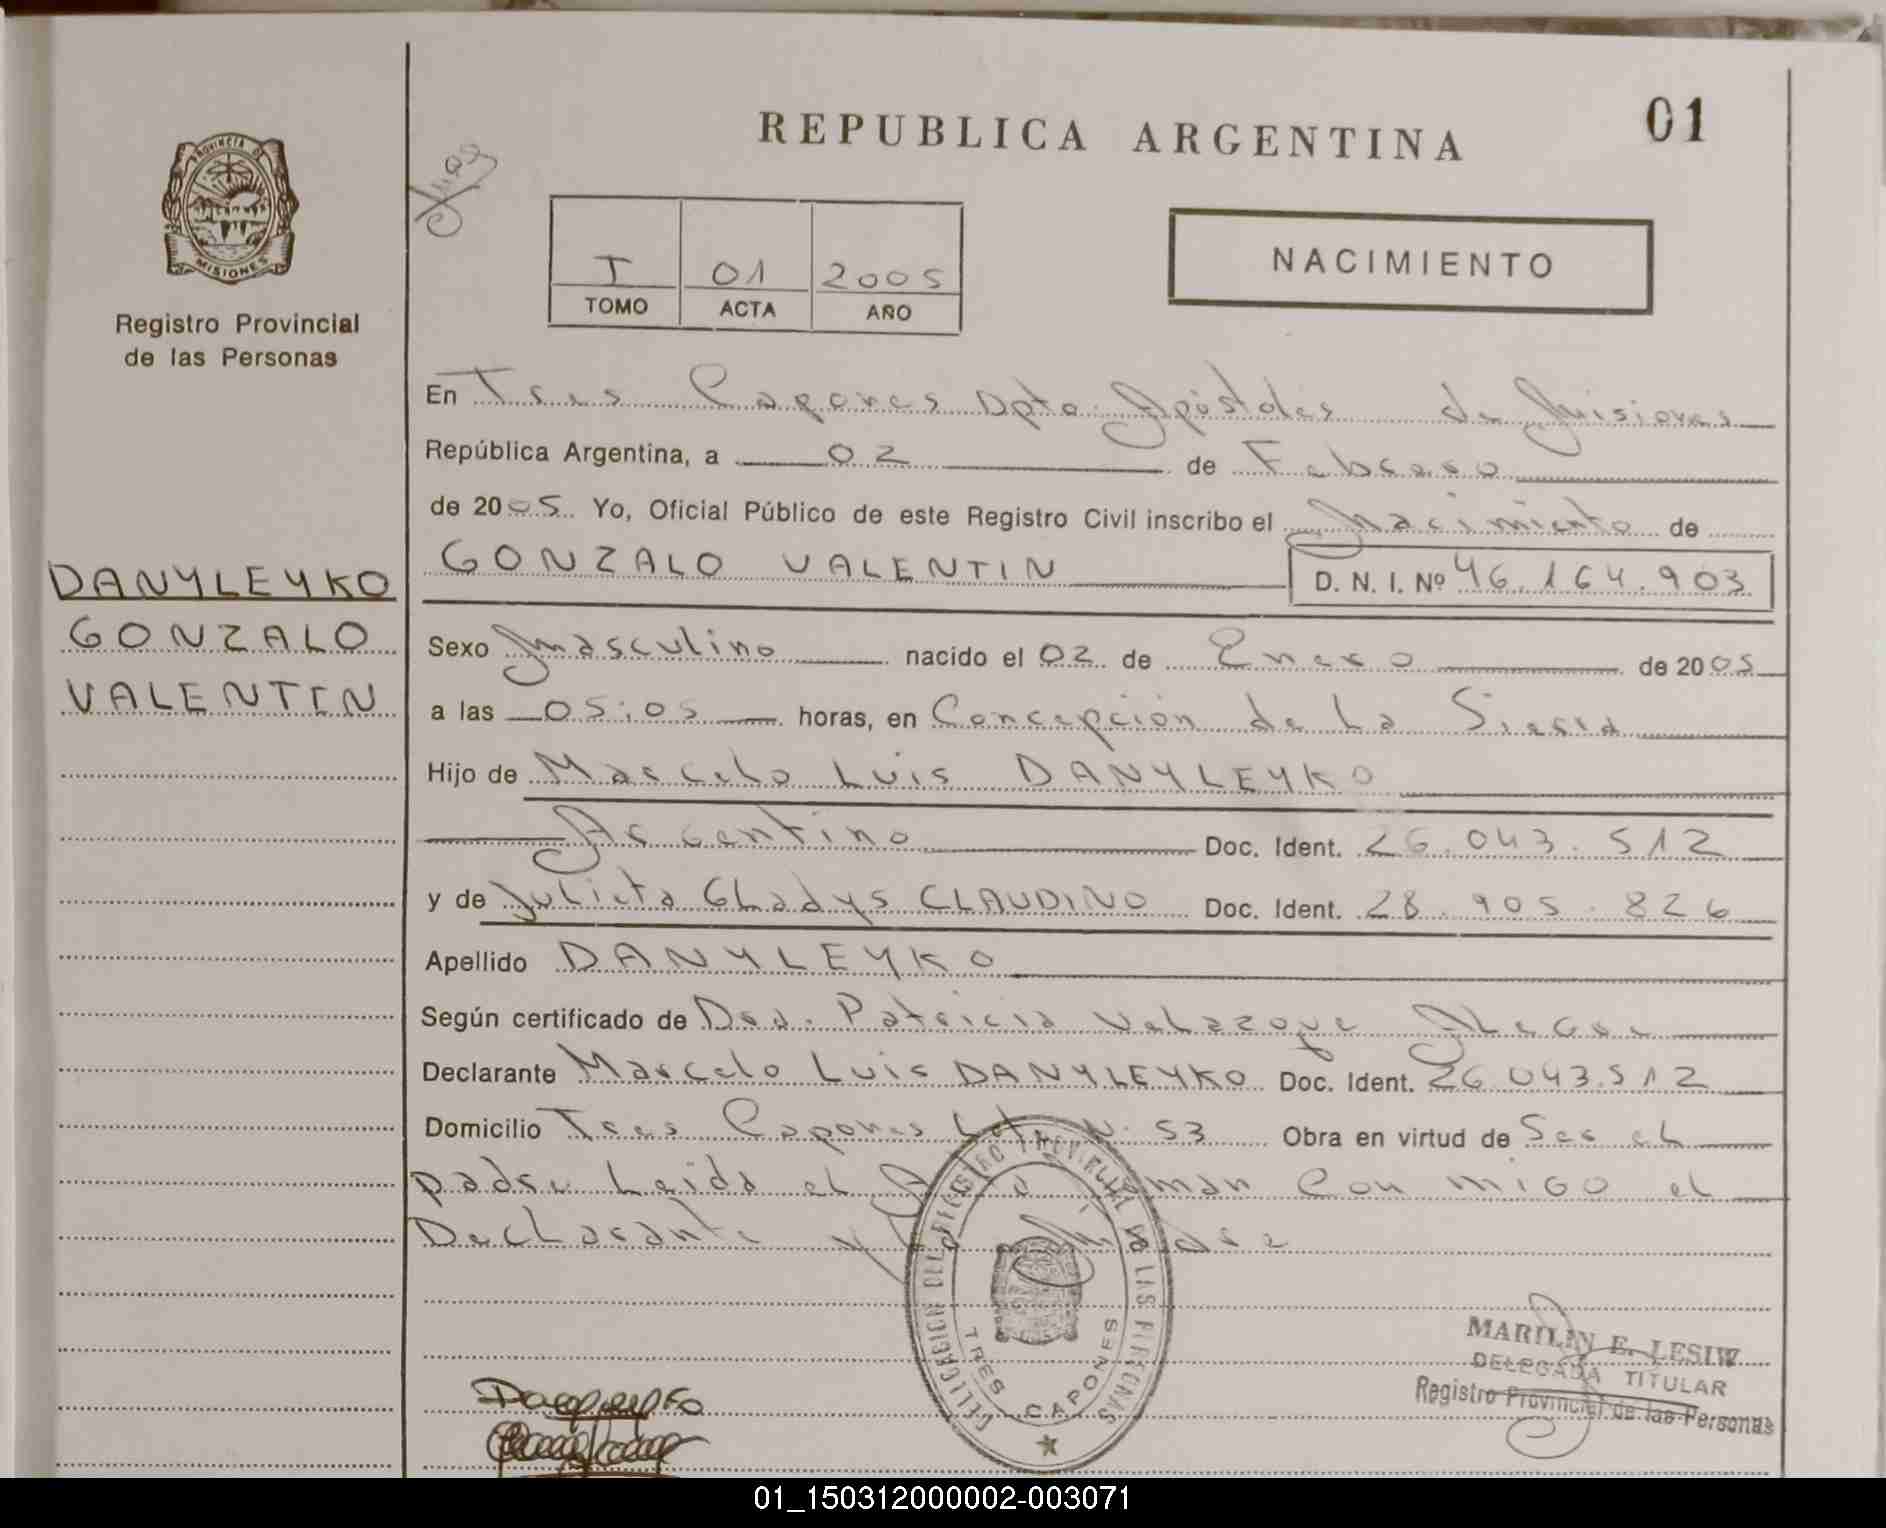 REPUBLICA ARGENTINA
01
PROVINCIA DE
MISIONES
Registro Provincial
de las Personas
I 01 2005
TOMO ACTA AÑO
NACIMIENTO
En Tres Capones Dpto. Apóstoles de Misiones
República Argentina, a 02 de Febrero
de 2005 Yo, Oficial Público de este Registro Civil inscribo el Nacimiento de
GONZALO VALENTIN D. N. I. Nº 46.164.903
DANYLEYKO
GONZALO
VALENTIN
Sexo Masculino nacido el 02 de Enero de 2005
a las 05:05 horas, en Concepción de La Sierra
Hijo de Marcelo Luis DANYLEYKO
Argentino Doc. Ident. 26.043.512
y de Julieta Gladys CLAUDINO Doc. Ident. 28.905.826
Apellido DANYLEYKO
Según certificado de Dra. Patricia Velazque Alegre
Declarante Marcelo Luis DANYLEYKO Doc. Ident. 26.043.512
Domicilio Tres Capones Lote N. 53 Obra en virtud de Ser el
padre Leida el man Con migo el
Declarante y
DELEGACION DEL REGISTRO PROVINCIAL DE LAS PERSONAS
TRES CAPONES
MARILIN E. LESIW
DELEGADA TITULAR
Registro Provincial de las Personas
01_150312000002-003071